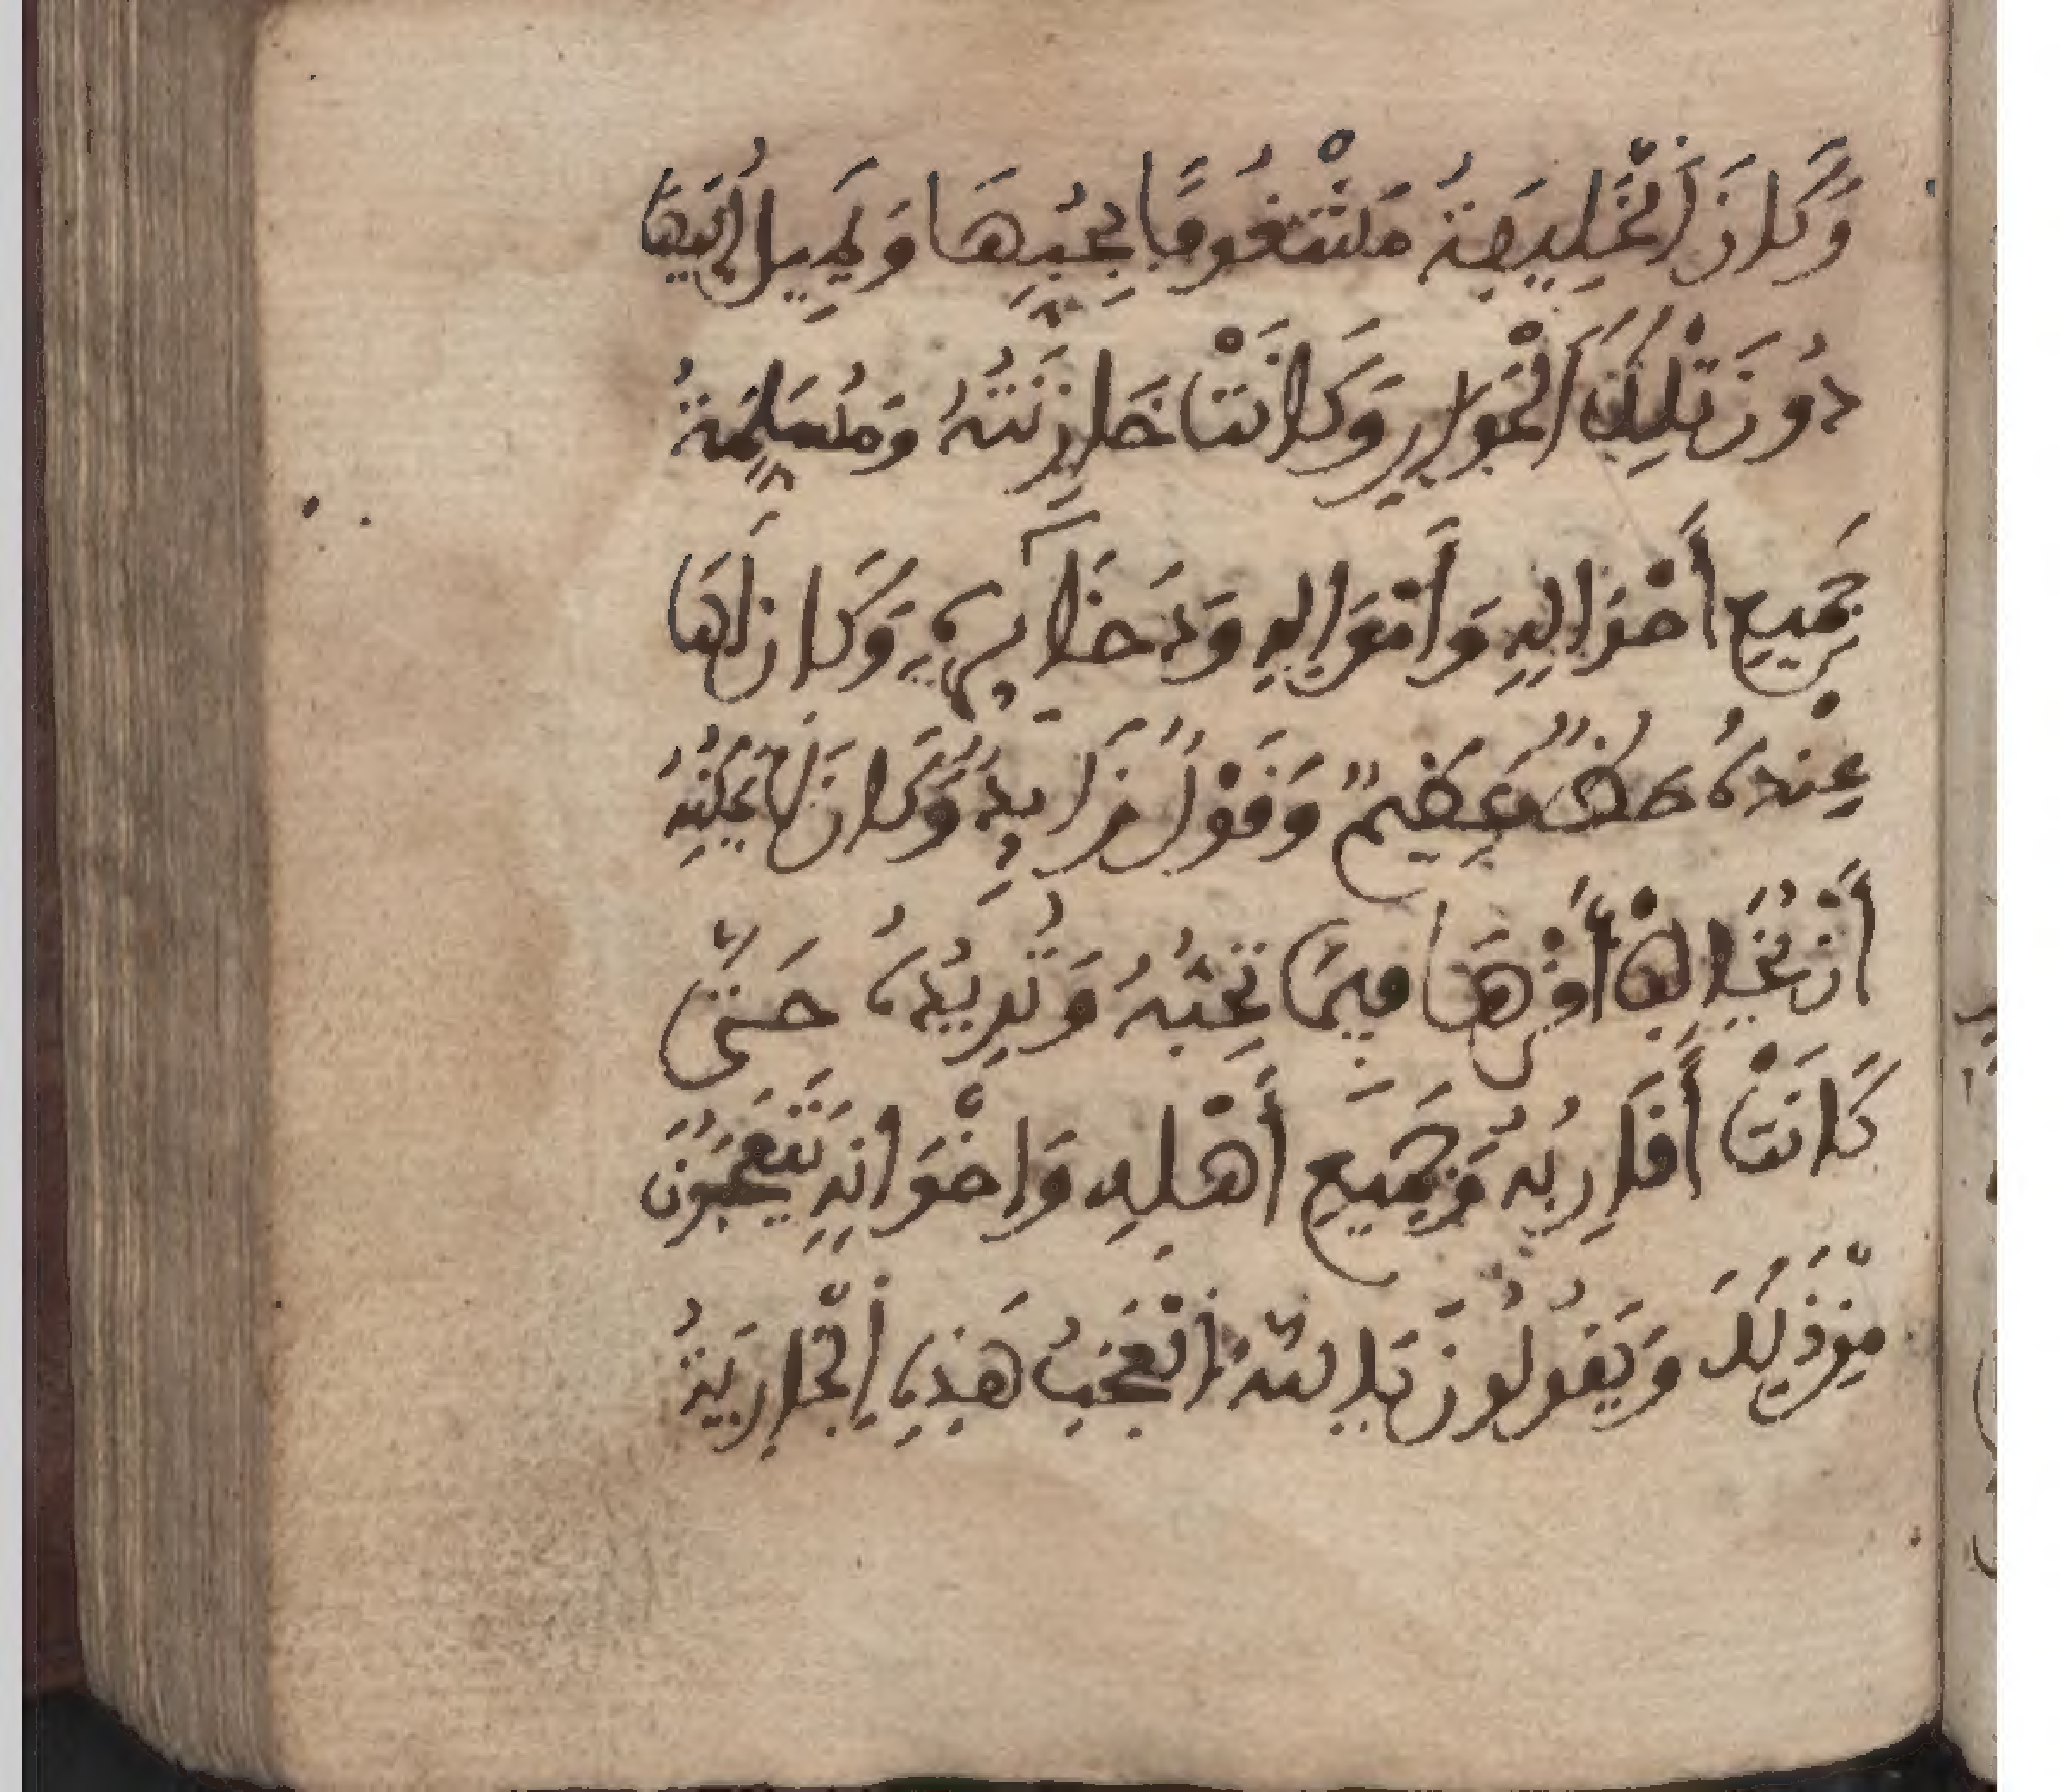 وَكَانَ الْخَلِيفَةُ مَشْغُوفًا بِحُبِّهَا وَيَمِيلُ إِلَيْهَا
دُونَ تِلْكَ الْجَوَارِي وَكَانَتْ خَازِنَتُهُ وَمُسَلِّمَةُ
جَمِيعِ أَحْوَالِهِ وَأَمْوَالِهِ وَدَخَايِرِهِ وَكَانَ لَهَا
عِنْدَهُ حَظٌّ عَظِيمٌ وَقَوْلٌ زَايِدٌ وَكَانَ لَا يُمْكِنُهُ
أَنْ يُخَالِفْ أَمْرَهَا فِيمَا تُحِبُّهُ وَتُرِيدُهُ حَتَّى
كَانَتْ أَقَارِبُهُ وَجَمِيعِ أَهْلِهِ وَإِخْوَانِهِ يَتَعَجَّبُونَ
مِنْ ذَلِكَ وَيَقُولُونَ بِاللَّهِ الْعَجَبُ هَذِهِ الْجَارِيَةُ